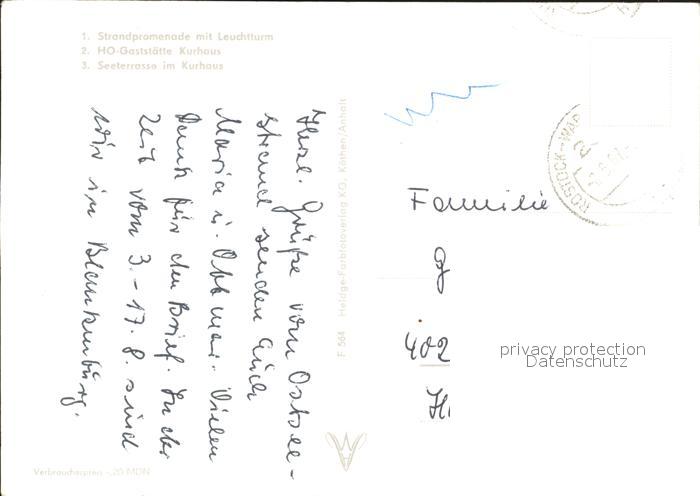 1. Strandpromenade mit Leuchtturm
2. HO-Gaststätte Kurhaus
3. Seeterrasse im Kurhaus
Herzl. Grüße vom Ostsee-
strand senden Euch
Maria u. Ottmar. Vielen
Dank für den Brief. In der
Zeit vom 3. - 17. 8. sind
wir in Blankenburg.
F 564 Heldge-Farbfotoverlag KG, Köthen/Anhalt
Verbraucherpreis -,20 MDN
ROSTOCK-WAR
Familie
402
privacy protection
Datenschutz